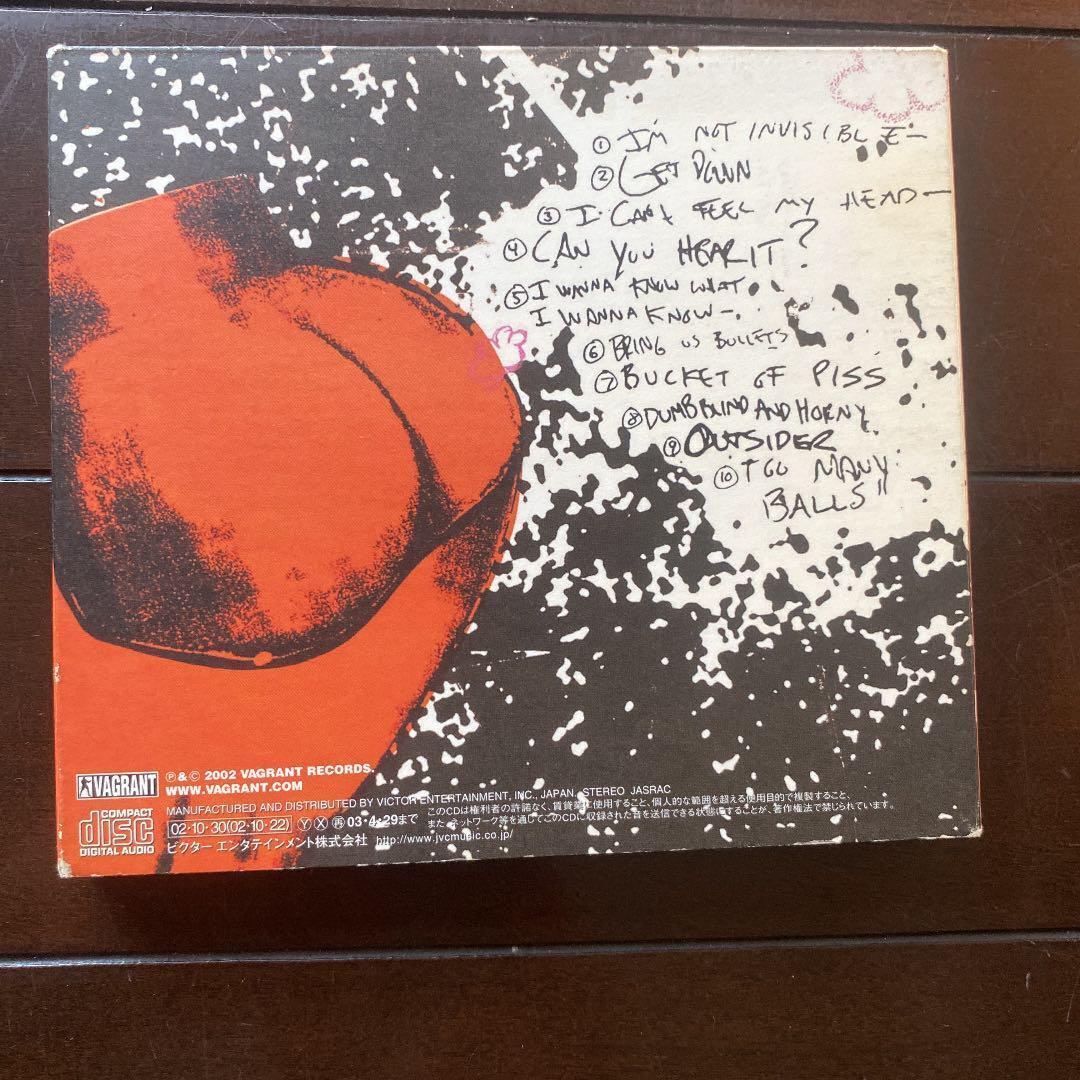 ① I'M NOT INVISIBLE—
② GET DOWN
③ I CAN'T FEEL MY HEAD—
④ CAN YOU HEAR IT?
⑤ I WANNA KNOW WHAT
I WANNA KNOW—.
⑥ BRING US BULLETS
⑦ BUCKET OF PISS
⑧ DUMB BLIND AND HORNY
⑨ OUTSIDER
⑩ TOO MANY
BALLS"
VAGRANT
℗ & © 2002 VAGRANT RECORDS.
WWW.VAGRANT.COM
MANUFACTURED AND DISTRIBUTED BY VICTOR ENTERTAINMENT, INC., JAPAN STEREO JASRAC
このCDは権利者の許諾なく、賃貸業に使用すること、個人的な範囲を超える使用目的で複製すること、
また、ネットワーク等を通じてこのCDに収録された音を送信できる状態にすることが、著作権法で禁じられています。
COMPACT
disc
DIGITAL AUDIO
02・10・30(02・10・22) Ⓨ Ⓧ ㊢ 03・4・29まで
ビクター エンタテインメント株式会社 http://www.jvcmusic.co.jp/